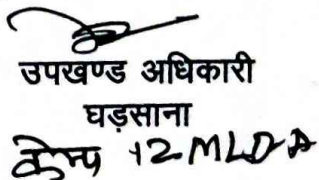 उपखण्ड अधिकारी
घड़साना
केम्प 12 MLD-A